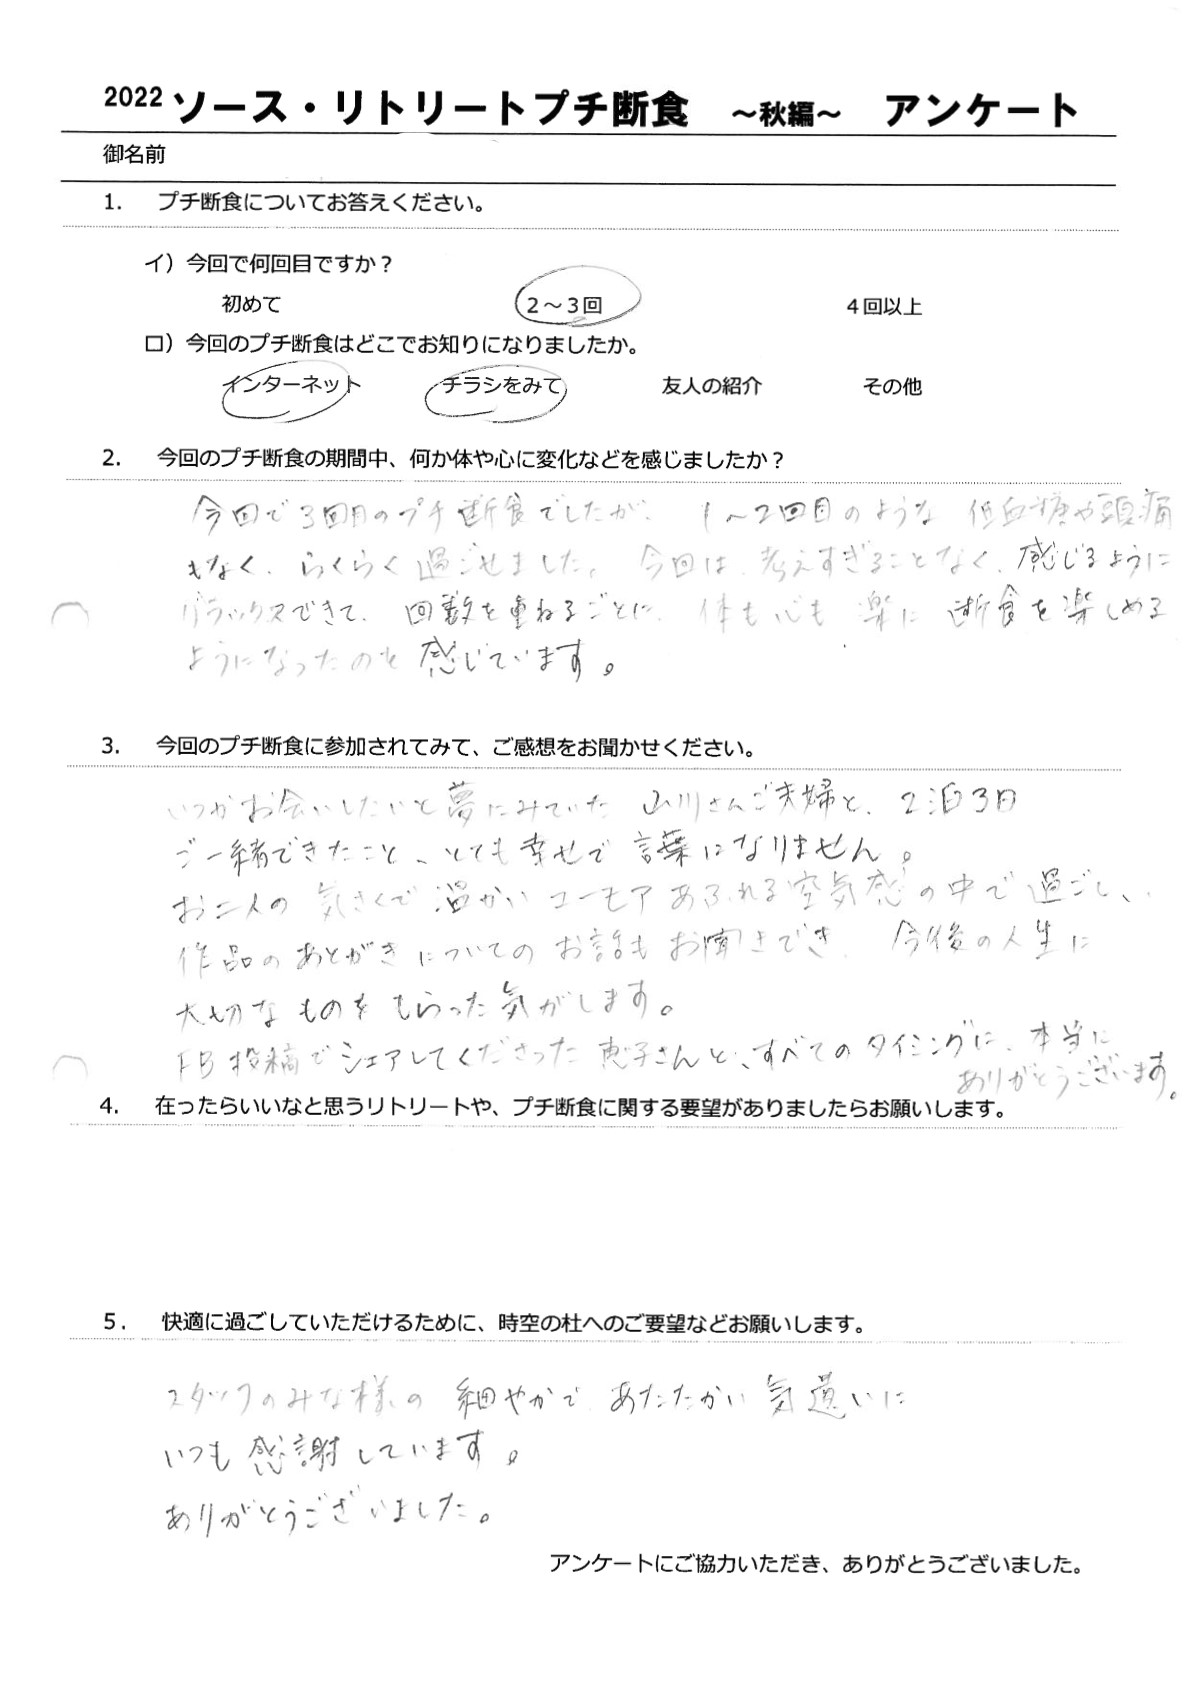 2022 ソース・リトリートプチ断食 ～秋編～ アンケート
御名前
1. プチ断食についてお答えください。
イ）今回で何回目ですか？
初めて 2～3回 4回以上
ロ）今回のプチ断食はどこでお知りになりましたか。
インターネット チラシをみて 友人の紹介 その他
2. 今回のプチ断食の期間中、何か体や心に変化などを感じましたか？
今回で3回目のプチ断食でしたが、1～2回目のような 低血糖や頭痛
もなく、らくらく過ごせました。今回は、考えすぎることなく、感じるように
リラックスできて、回数を重ねるごとに、体も心も楽に断食を楽しめる
ようになったのを感じています。
3. 今回のプチ断食に参加されてみて、ご感想をお聞かせください。
いつかお会いしたいと夢にみていた 山川さんご夫婦と、2泊3日
ご一緒できたこと、とても幸せで言葉になりません。
お二人の 気さくで温かいユーモアあふれる空気感の中で過ごし、
作品のあとがきについてのお話もお聞きでき、今後の人生に
大切なものをもらった気がします。
FB投稿でシェアしてくださった恵子さんと、すべてのタイミングに、本当に
ありがとうございます。
4. 在ったらいいなと思うリトリートや、プチ断食に関する要望がありましたらお願いします。
5. 快適に過ごしていただけるために、時空の杜へのご要望などお願いします。
スタッフのみな様の 細やかで、あたたかい気遣いに
いつも感謝しています。
ありがとうございました。
アンケートにご協力いただき、ありがとうございました。